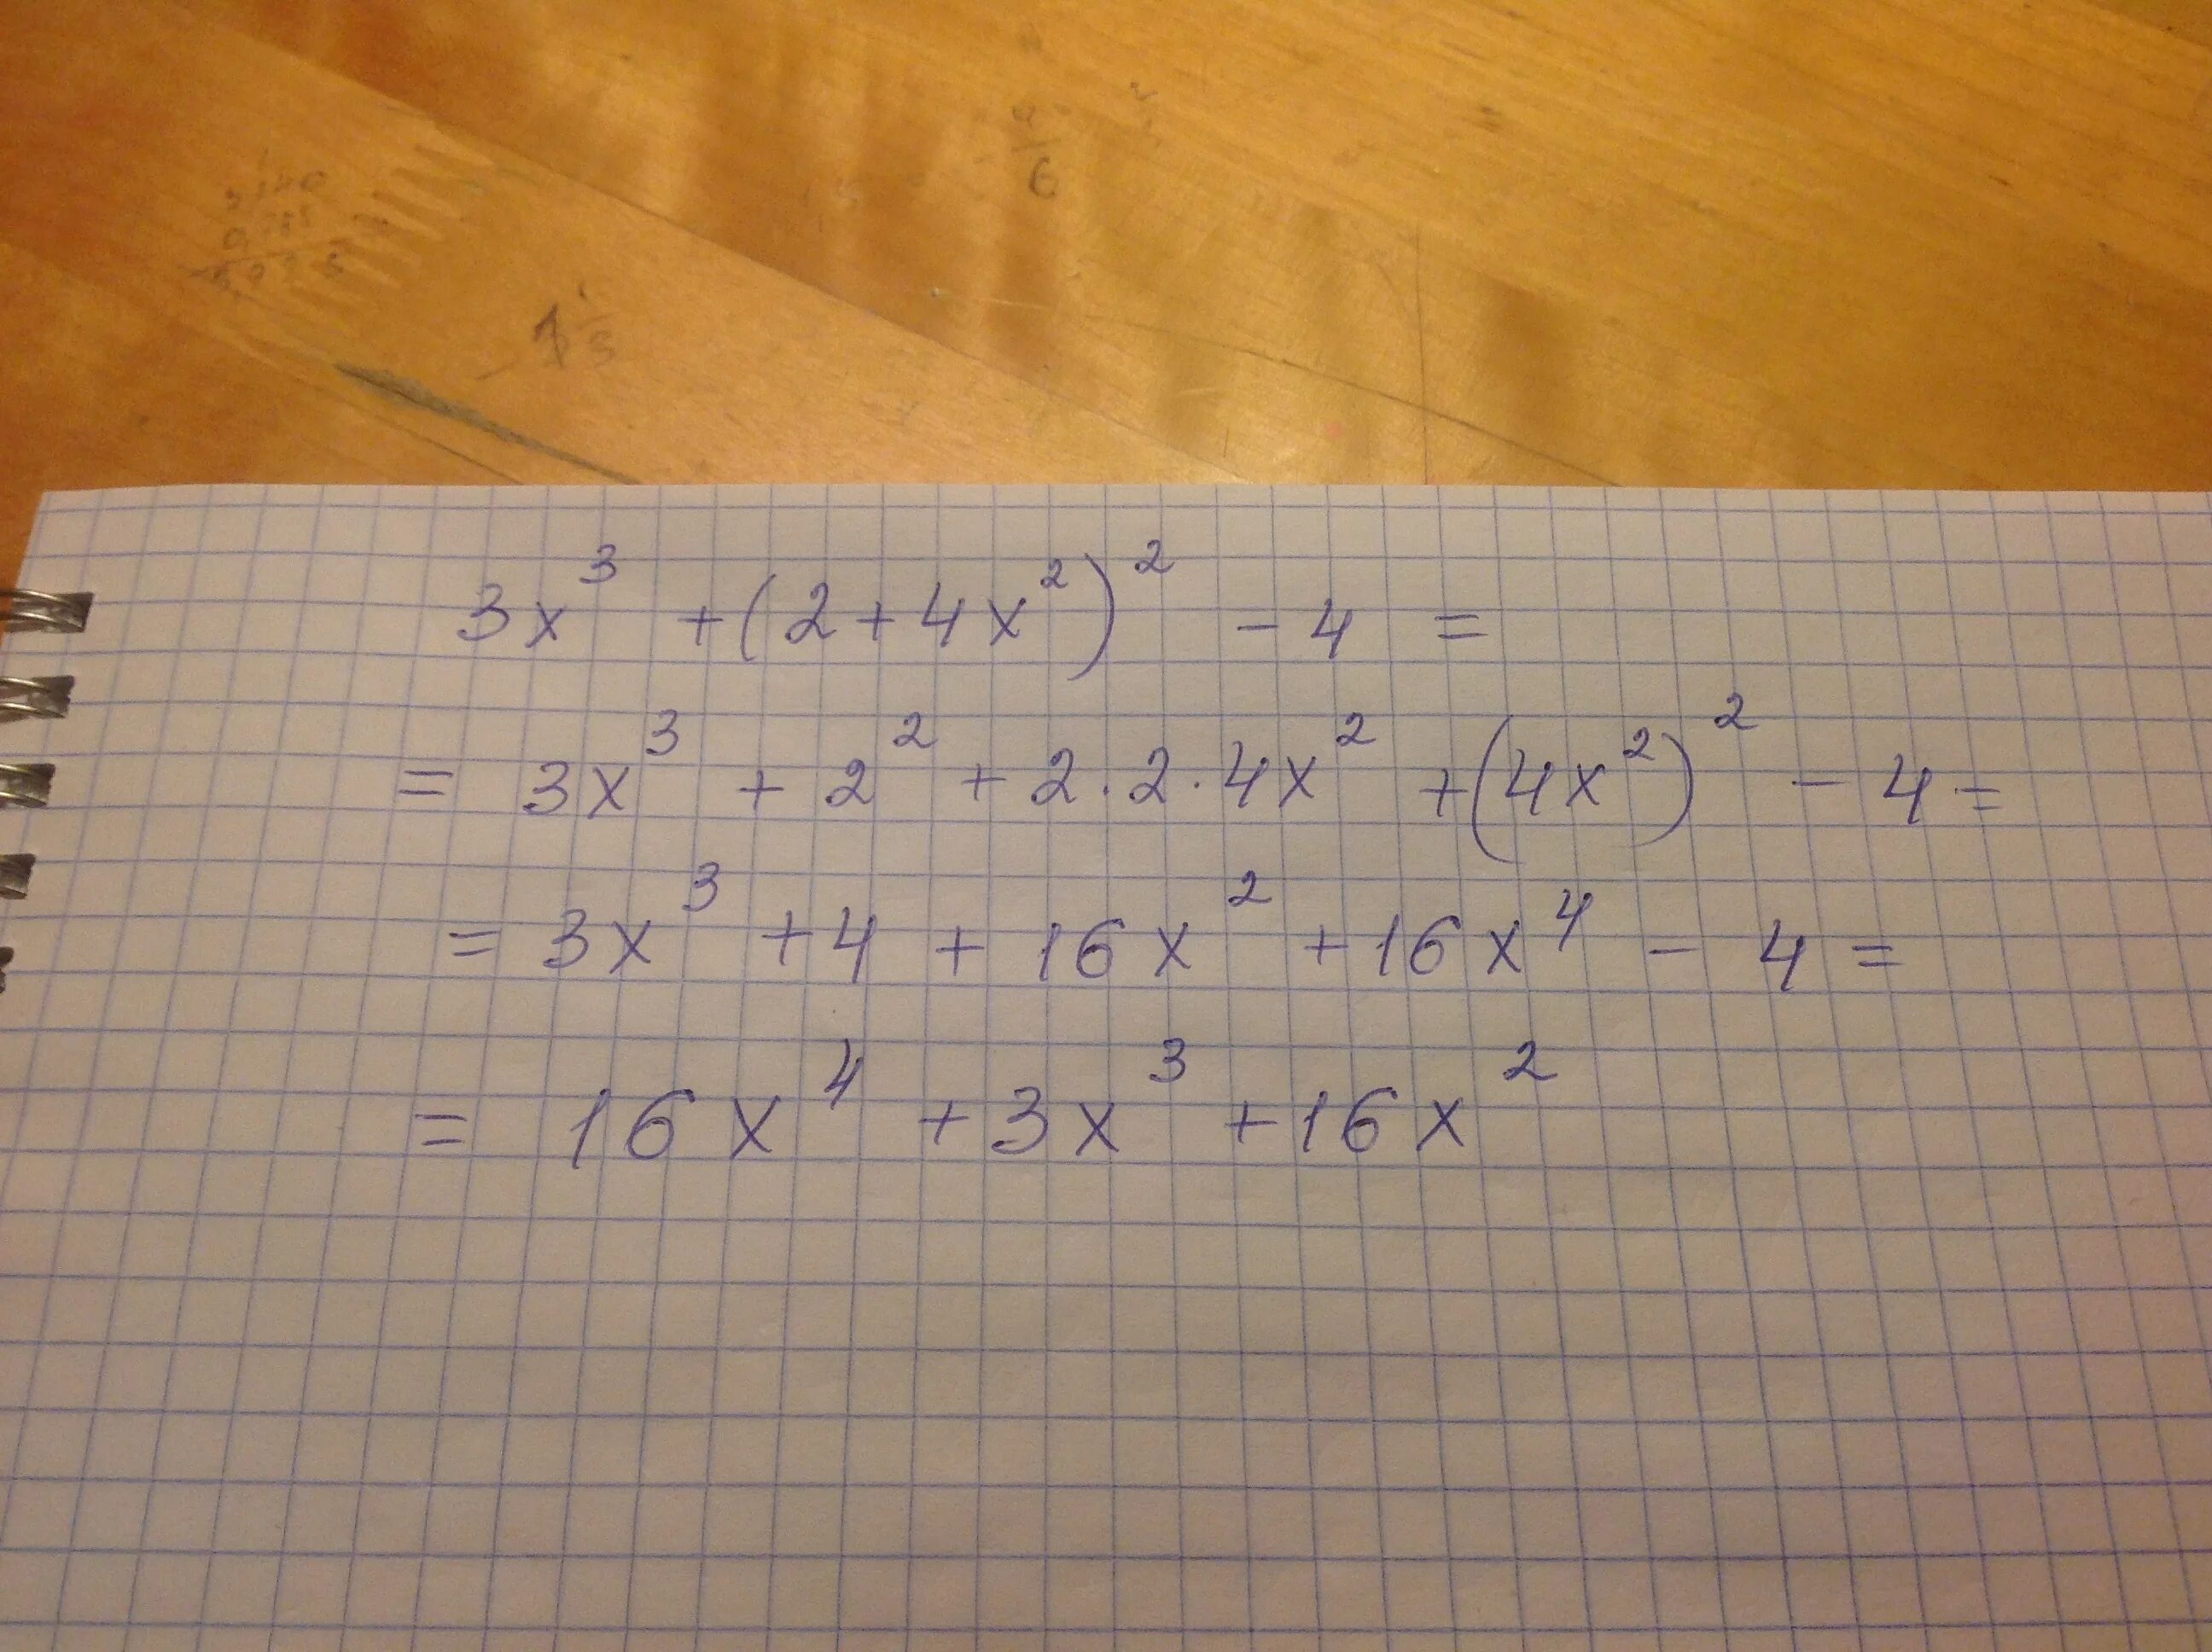 3x³ + (2 + 4x²)² - 4 =
= 3x³ + 2² + 2 · 2 · 4x² + (4x²)² - 4 =
= 3x³ + 4 + 16x² + 16x⁴ - 4 =
= 16x⁴ + 3x³ + 16x²